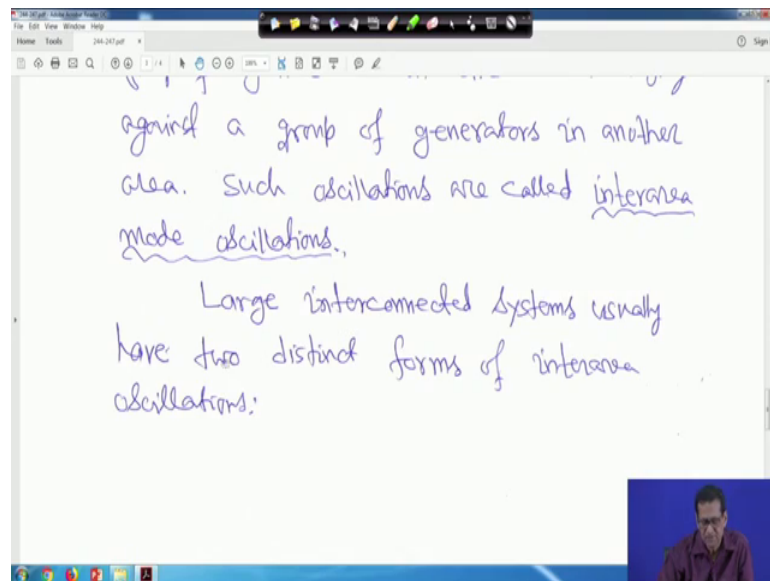 244-247.pdf - Adobe Acrobat Reader DC
File Edit View Window Help
Home Tools 244-247.pdf × Sign
1 / 4
against a group of generators in another
area. Such oscillations are called interarea
mode oscillations.
Large interconnected systems usually
have two distinct forms of interarea
oscillations: